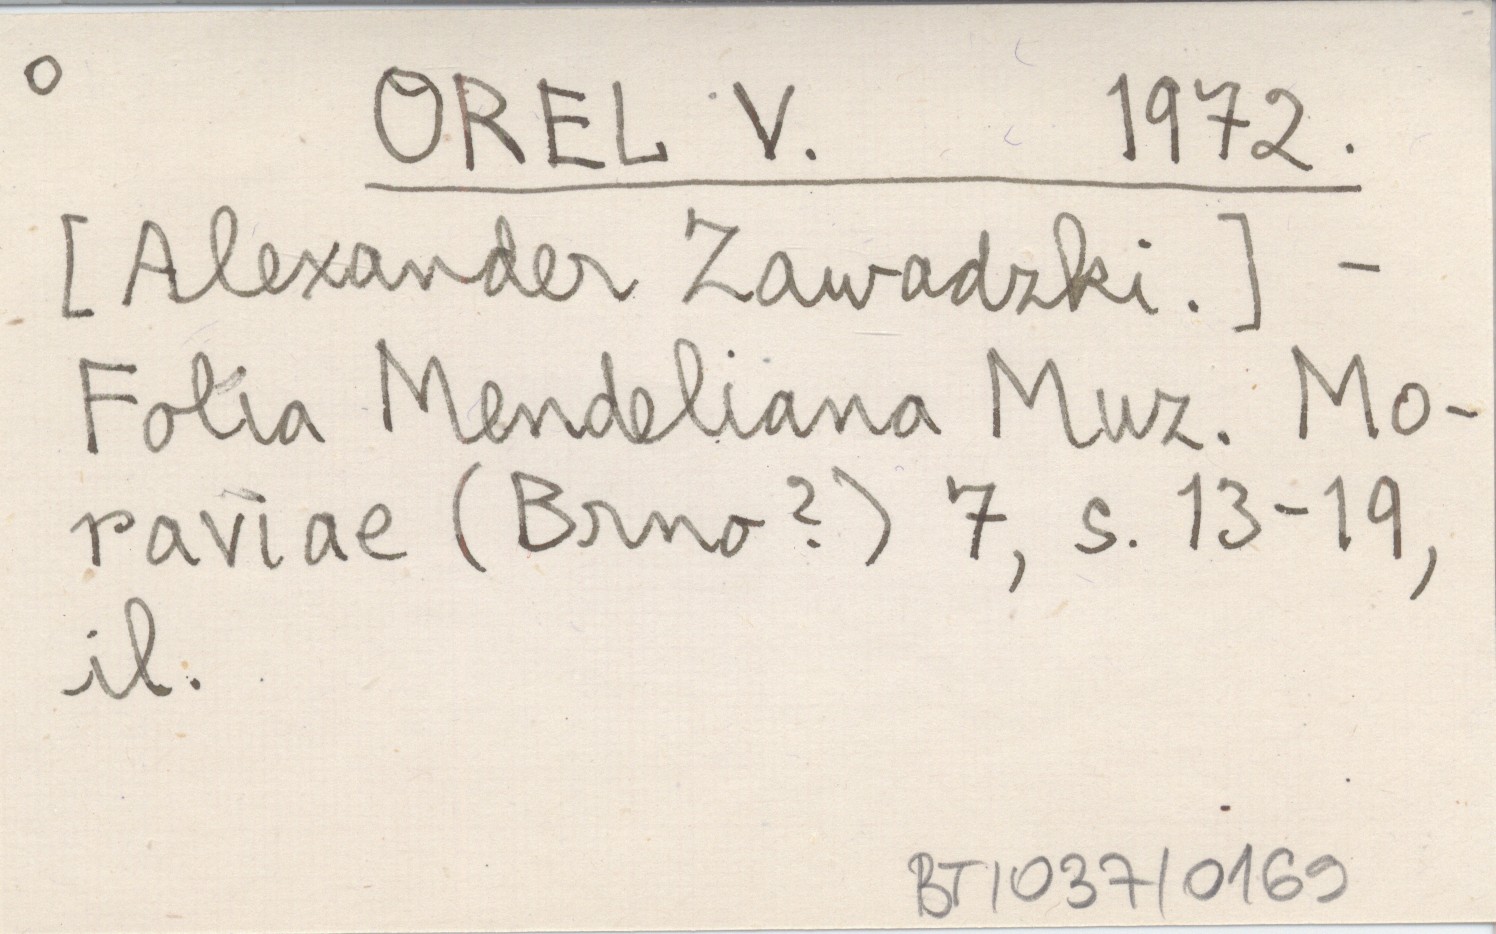 ° OREL V. 1972.
[Alexander Zawadzki.] -
Folia Mendeliana Muz. Mo-
raviae (Brno?) 7, s. 13-19,
il.
BT/037/0169